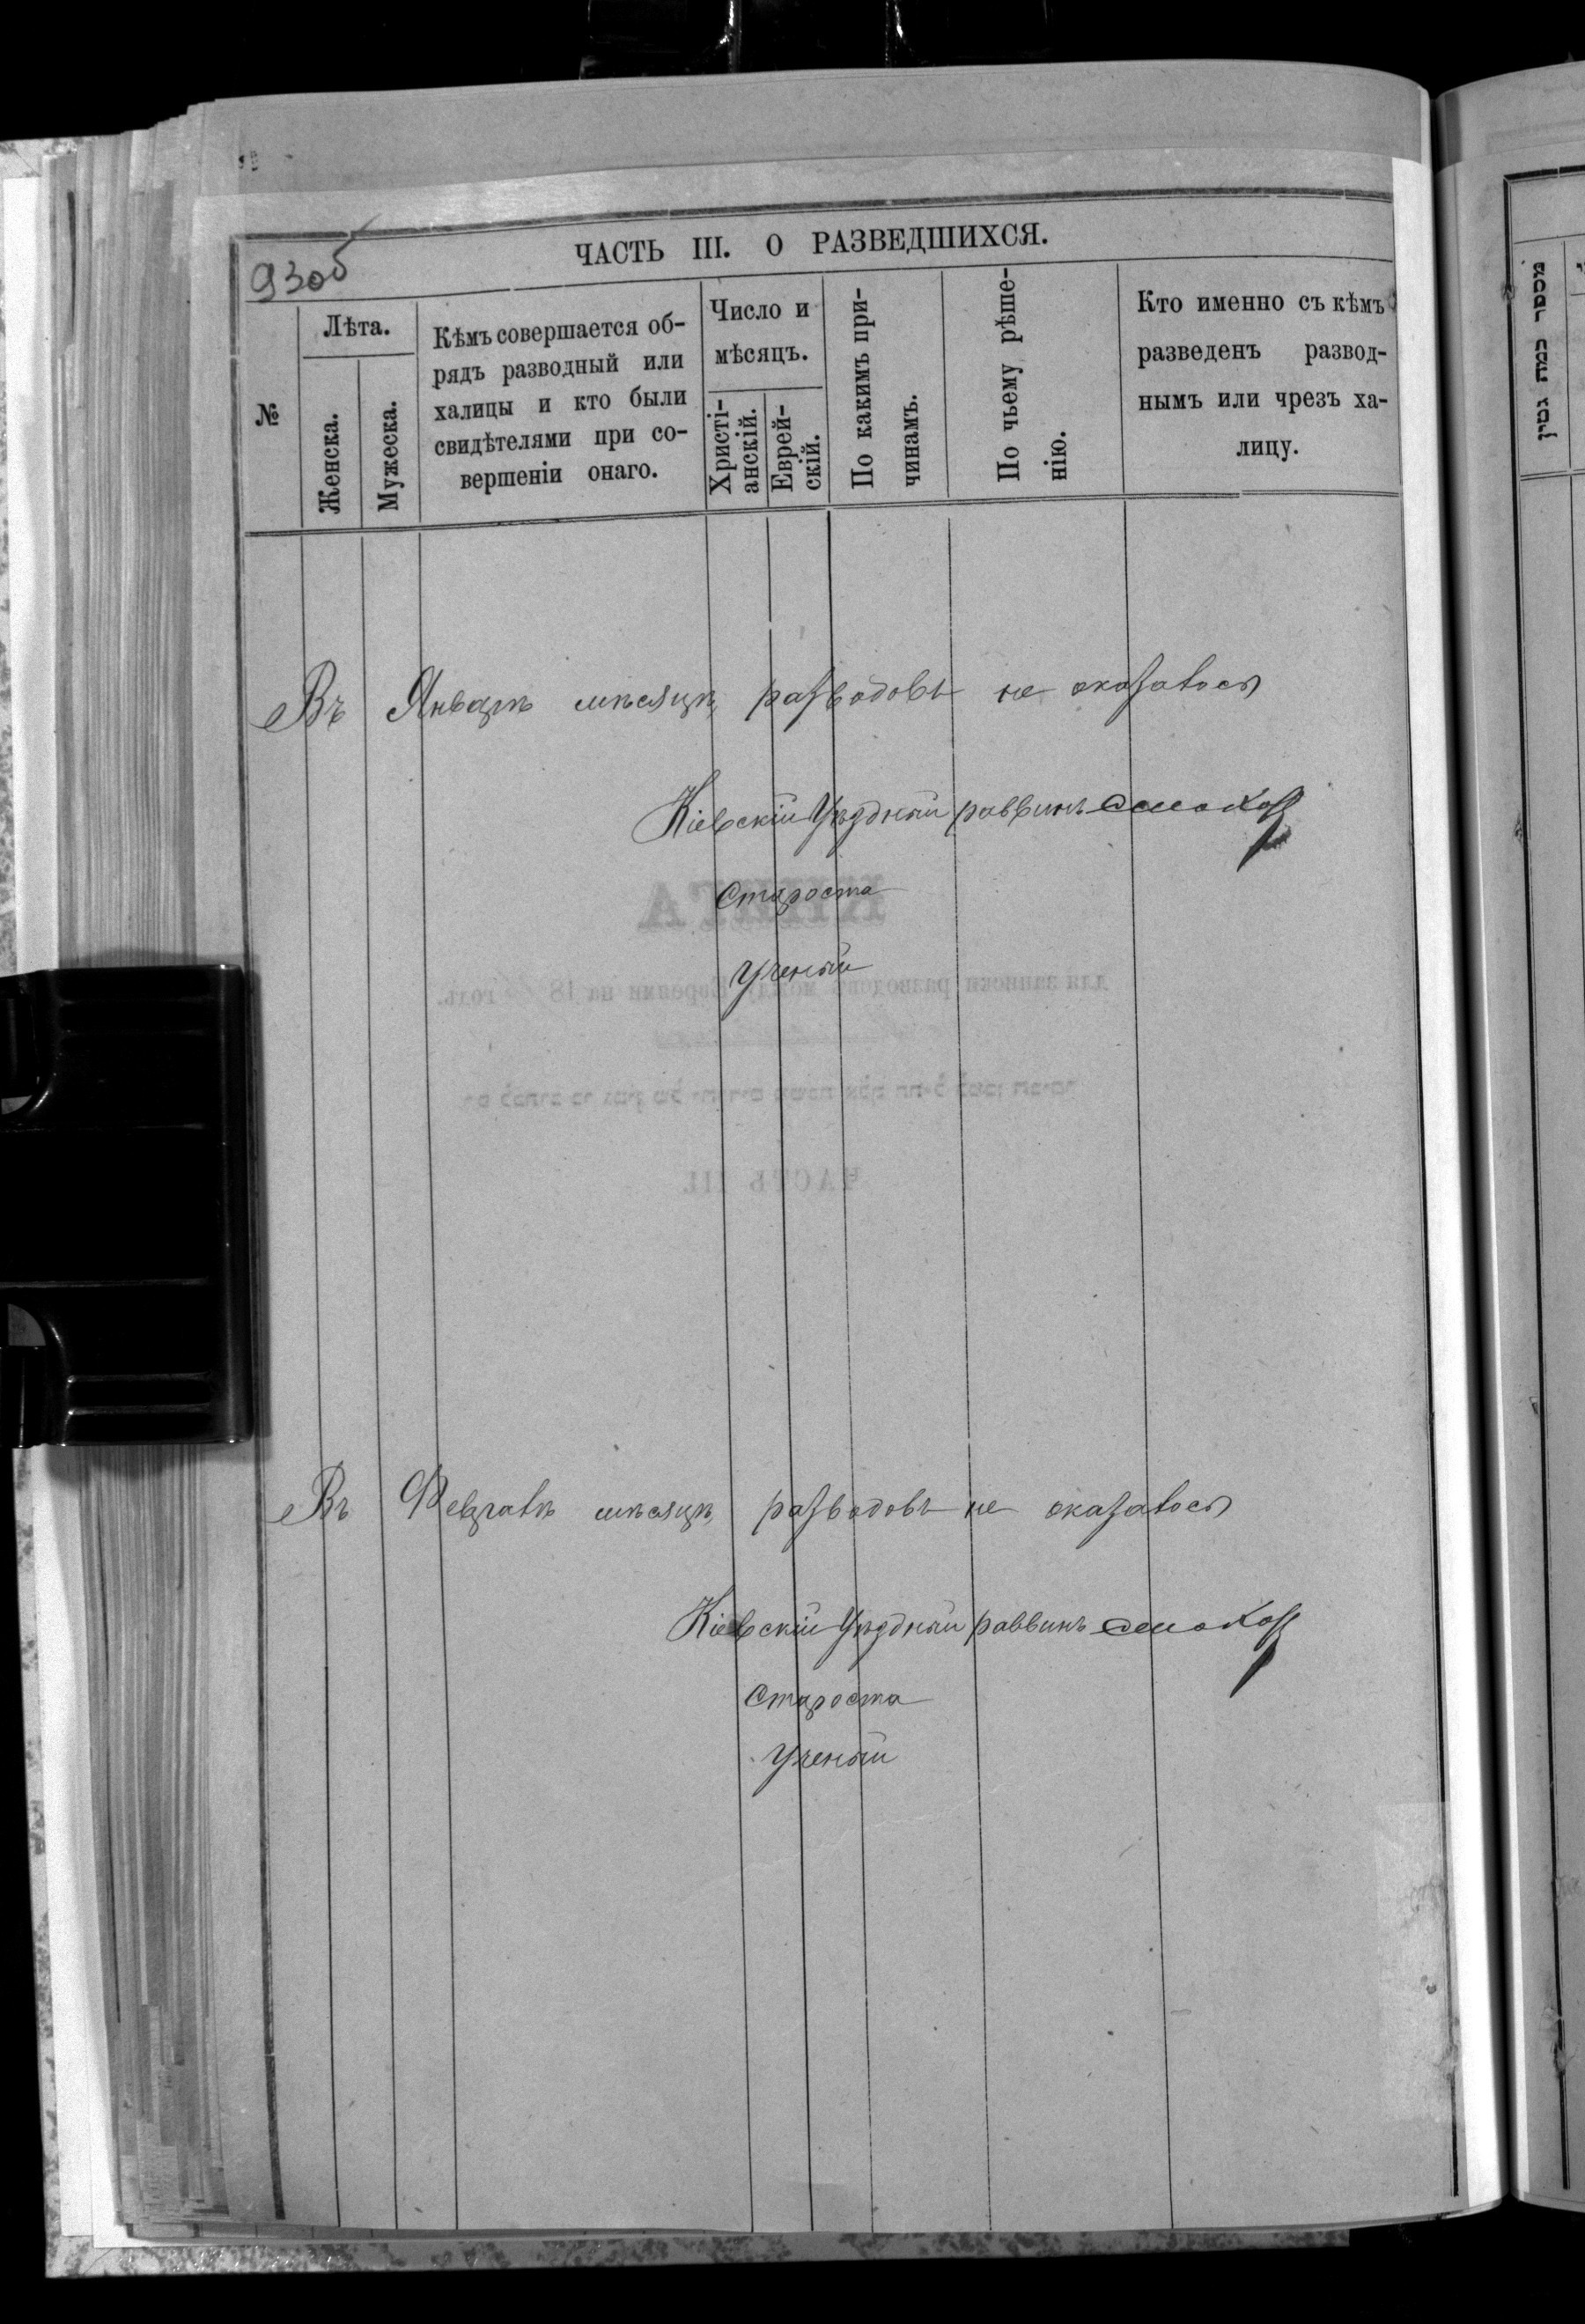 930б
ЧАСТЬ III. О РАЗВЕДШИХСЯ.
№
Лѣта.
Женска.
Мужеска.
Кѣмъ совершается об-
рядъ разводный или
халицы и кто были
свидѣтелями при со-
вершеніи онаго.
Число и
мѣсяцъ.
Христі-
анскій.
Еврей-
скій.
По какимъ при-
чинамъ.
По чьему рѣше-
нію.
Кто именно съ кѣмъ
разведенъ развод-
нымъ или чрезъ ха-
лицу.
Въ Январѣ мѣсяцѣ разводовъ не оказалось
Кіевскій Уѣздный раввинъ
Староста
Ученый
Въ Февралѣ мѣсяцѣ разводовъ не оказалось
Кіевскій Уѣздный раввинъ
Староста
Ученый
מספר כמה גטין